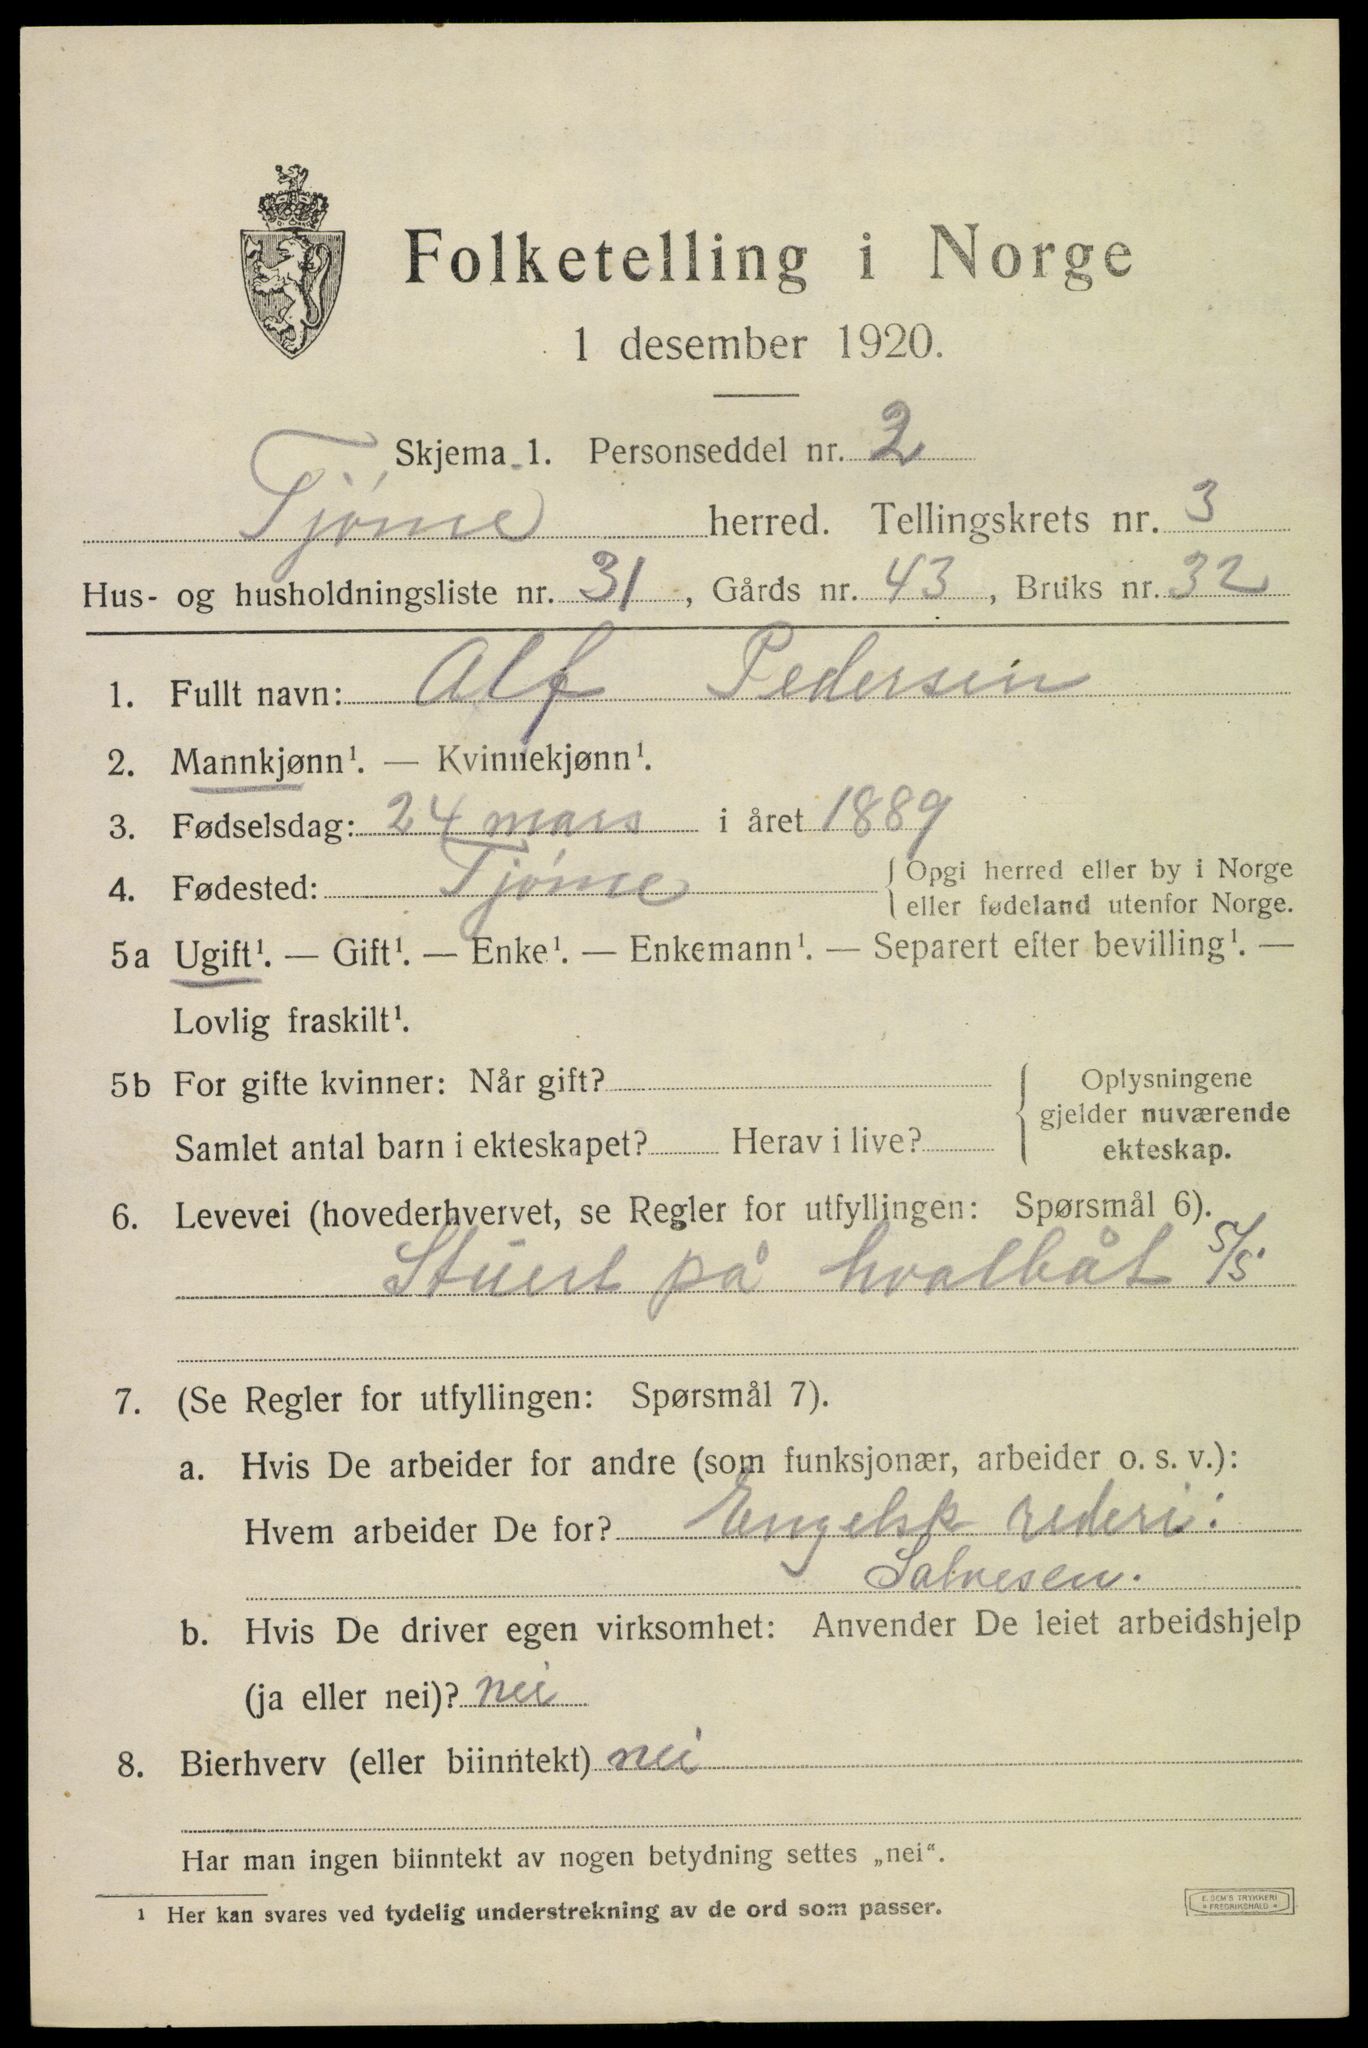 Folketelling i Norge
1 desember 1920.
Skjema 1. Personseddel nr. 2
Tjøme herred. Tellingskrets nr. 3
Hus- og husholdningsliste nr. 31, Gårds nr. 43, Bruks nr. 32
1. Fullt navn: Alf Pedersen
2. Mannkjønn¹. — Kvinnekjønn¹.
3. Fødselsdag: 24 mars i året 1889
4. Fødested: Tjøme { Opgi herred eller by i Norge
eller fødeland utenfor Norge.
5a Ugift¹. — Gift¹. — Enke¹. — Enkemann¹. — Separert efter bevilling¹. —
Lovlig fraskilt¹.
5b For gifte kvinner: Når gift? { Oplysningene
gjelder nuværende
Samlet antal barn i ekteskapet? Herav i live? ekteskap.
6. Levevei (hovederhvervet, se Regler for utfyllingen: Spørsmål 6).
Stuert på hvalbåt S/S
7. (Se Regler for utfyllingen: Spørsmål 7).
a. Hvis De arbeider for andre (som funksjonær, arbeider o. s. v.):
Hvem arbeider De for? Engelsk rederi:
Salvesen.
b. Hvis De driver egen virksomhet: Anvender De leiet arbeidshjelp
(ja eller nei)? nei
8. Bierhverv (eller biinntekt) nei
Har man ingen biinntekt av nogen betydning settes „nei“.
¹ Her kan svares ved tydelig understrekning av de ord som passer.
E. SEM'S TRYKKERI
* FREDRIKSHALD *